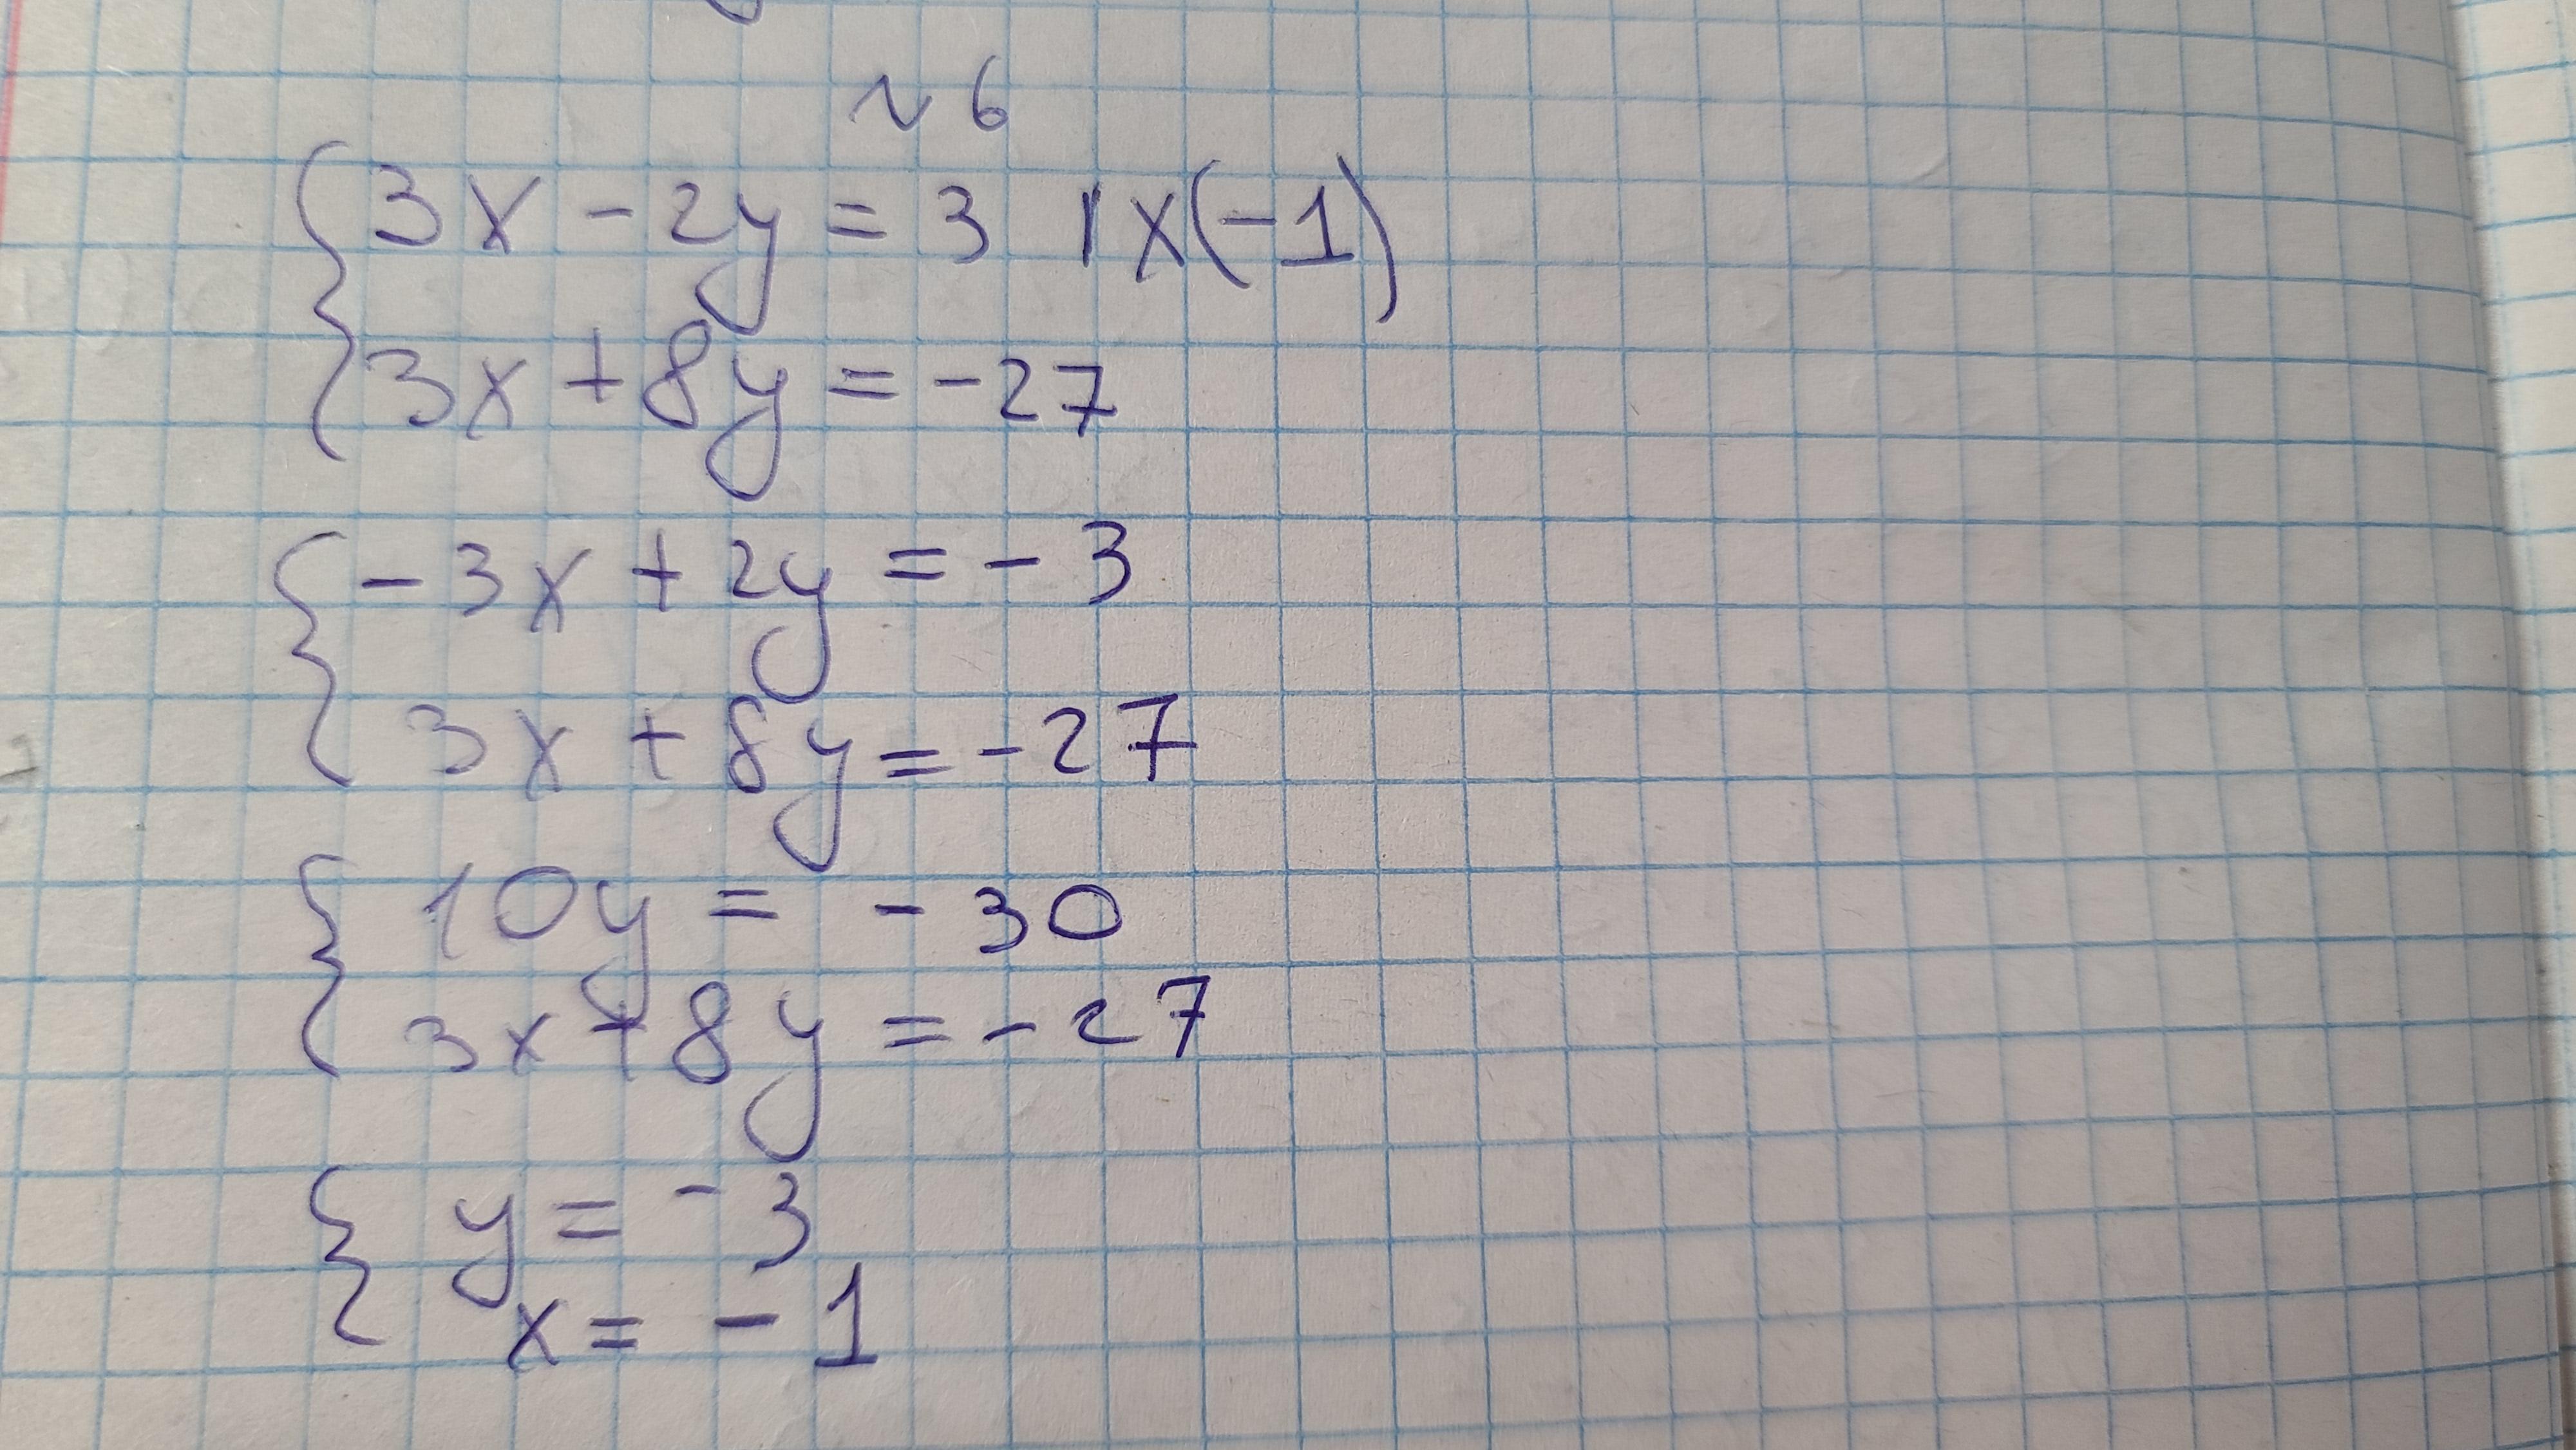 №6
{3x - 2y = 3 | x(-1)
{3x + 8y = -27
{-3x + 2y = -3
3x + 8y = -27
{10y = -30
3x + 8y = -27
{y = -3
x = -1